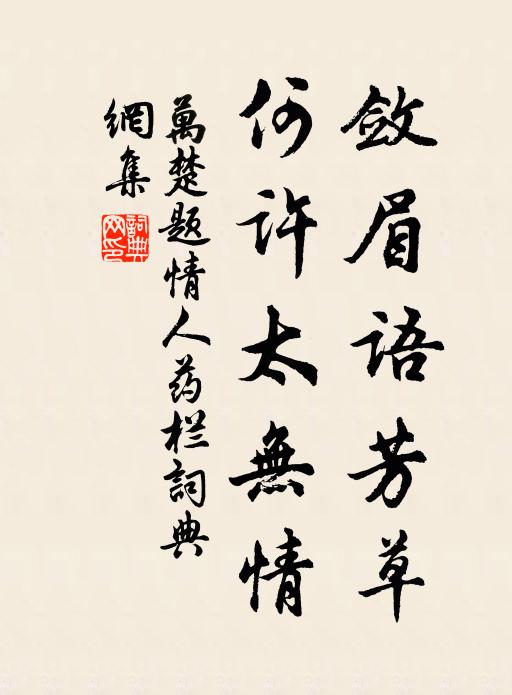 斂眉語芳草
何許太無情
萬楚题情人药栏詞典
網集
詞典网印